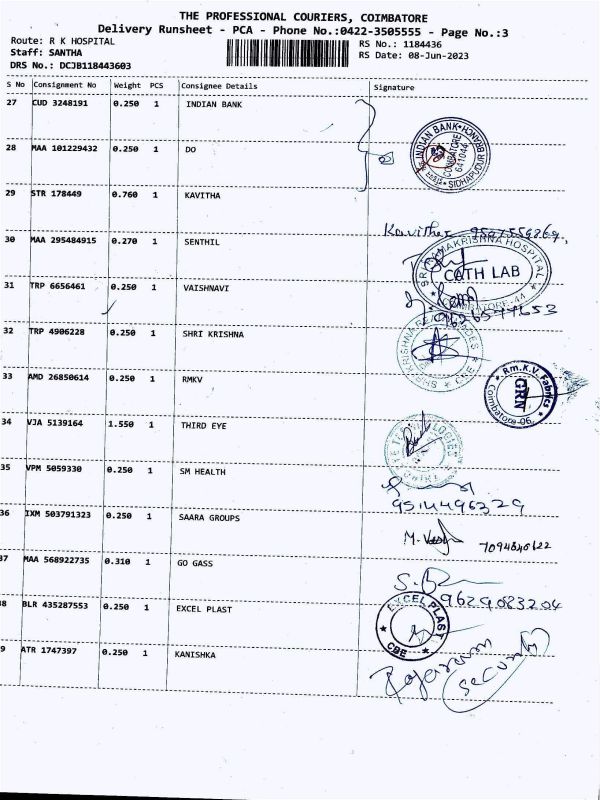 THE PROFESSIONAL COURIERS, COIMBATORE
Delivery Runsheet - PCA - Phone No.:0422-3505555 - Page No.:3
Route: R K HOSPITAL
RS No.: 1184436
Staff: SANTHA
RS Date: 08-Jun-2023
DRS No.: DCJB118443603
S No Consignment No Weight PCS Consignee Details Signature
27 CUD 3248191 0.250 1 INDIAN BANK
28 MAA 101229432 0.250 1 DO
INDIAN BANK
SIDHAPUDUR BRANCH
COIMBATORE
641044
29 STR 178449 0.760 1 KAVITHA
Kavitha
30 MAA 295484915 0.270 1 SENTHIL
SRI RAMAKRISHNA HOSPITAL
CATH LAB
COIMBATORE-44
31 TRP 6656461 0.250 1 VAISHNAVI
32 TRP 4906228 0.250 1 SHRI KRISHNA
CBE
33 AMD 26850614 0.250 1 RMKV
Rm.K.V. Fabrics
GRN
Coimbatore-06.
34 VJA 5139164 1.550 1 THIRD EYE
35 VPM 5059330 0.250 1 SM HEALTH
9514496329
36 IXM 503791323 0.250 1 SAARA GROUPS
37 MAA 568922735 0.310 1 GO GASS
9629083204
38 BLR 435287553 0.250 1 EXCEL PLAST
EXCEL PLAST
CBE
39 ATR 1747397 0.250 1 KANISHKA
Rajaram
Security